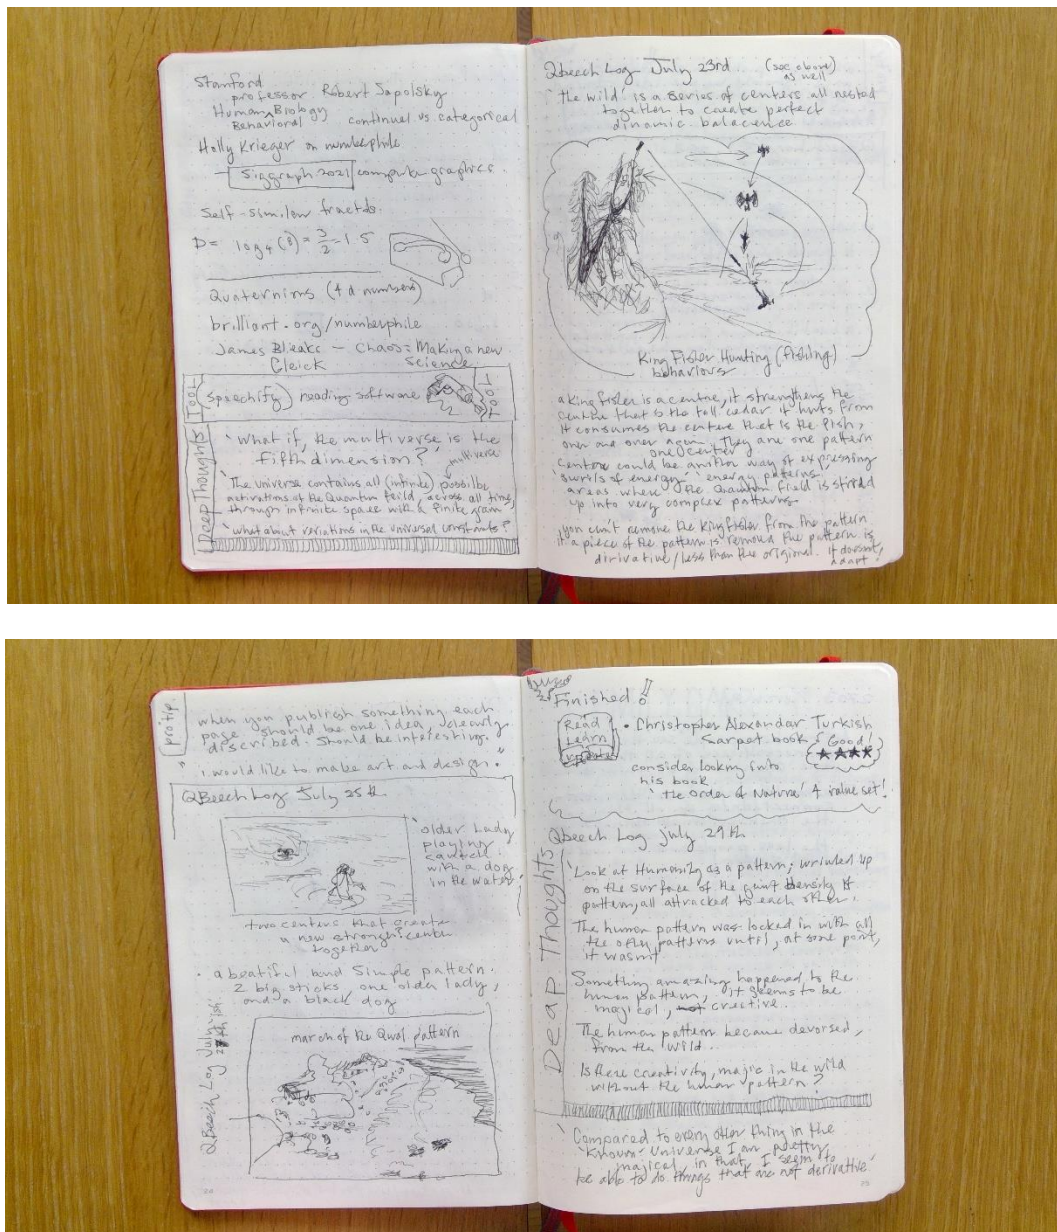 Stanford
professor Robert Sapolsky
Human Biology
Behavioral
continual vs categorical
Holly Krieger on numberphile
Siggraph 2021 computer graphics.
Self-similar fractals.
D= log4(8) = 3/2 = 1.5
Quaternions (4 d numbers)
brilliant.org/numberphile
James Bleaks - Chaos: Making a new
Gleick Science
Tool
(Speechify) reading software
Tool
Deep Thoughts
'What if, the multiverse is the
fifth dimension?'
multiverse
'The universe contains all (infinite) possible
activations of the Quantum feild, across all time,
through infinite space with a finite gram
'what about variations in the universal constants?'
Qbeech Log July 23rd. (see above)
as well
'the wild' is a series of centers all nested
together to create perfect
dinamic balacence
King Fisher Hunting (fishing)
behaviours
a King fisher is a centre, it strengthens the
centre that is the tall cedar it hunts from
it consumes the centre that is the fish,
over and over again. They are one pattern
one center
Centers could be another way of expressing
swirls of energy, energy patterns,
areas where the Quantum field is stirred
up into very complex patterns.
you can't remove the King fisher from the pattern
if a piece of the pattern is removed the pattern is
dirivative/less than the origional. it doesnt,
adapt.
pro tip.
when you publish something each
page should be one idea, clearly
described. Should be interesting.
"i would like to make art and design."
QBeech Log July 25th
'older Lady
playing
with a dog
in the water'
two centers that create
a new strong? center
together
• a beatiful and Simple pattern.
2 big sticks, one older lady,
and a black dog
QBeech Log July
march of the Qwal pattern
Finished!
Read
Learn
• Christopher Alexandar Turkish
Carpet book
Good!
★★★★
consider looking into
his book
'the Order of Nature' 4 value set!
Qbeech Log july 29th
Deap Thoughts
'Look at Humanity as a pattern; wrinkled up
on the surface of the giant density of
pattern, all attracked to each other.
The human pattern was locked in with all
the other patterns until, at some point,
it wasnt
Something amazing happened to the
human pattern, it seems to be
magical, creative.
The human pattern became devorsed,
from the wild..
Is there creativity, majic in the wild
without the human pattern?
'Compared to every other thing in the
'Known' Universe I am pretty
majical in that I seem to
be able to do things that are not derivative'